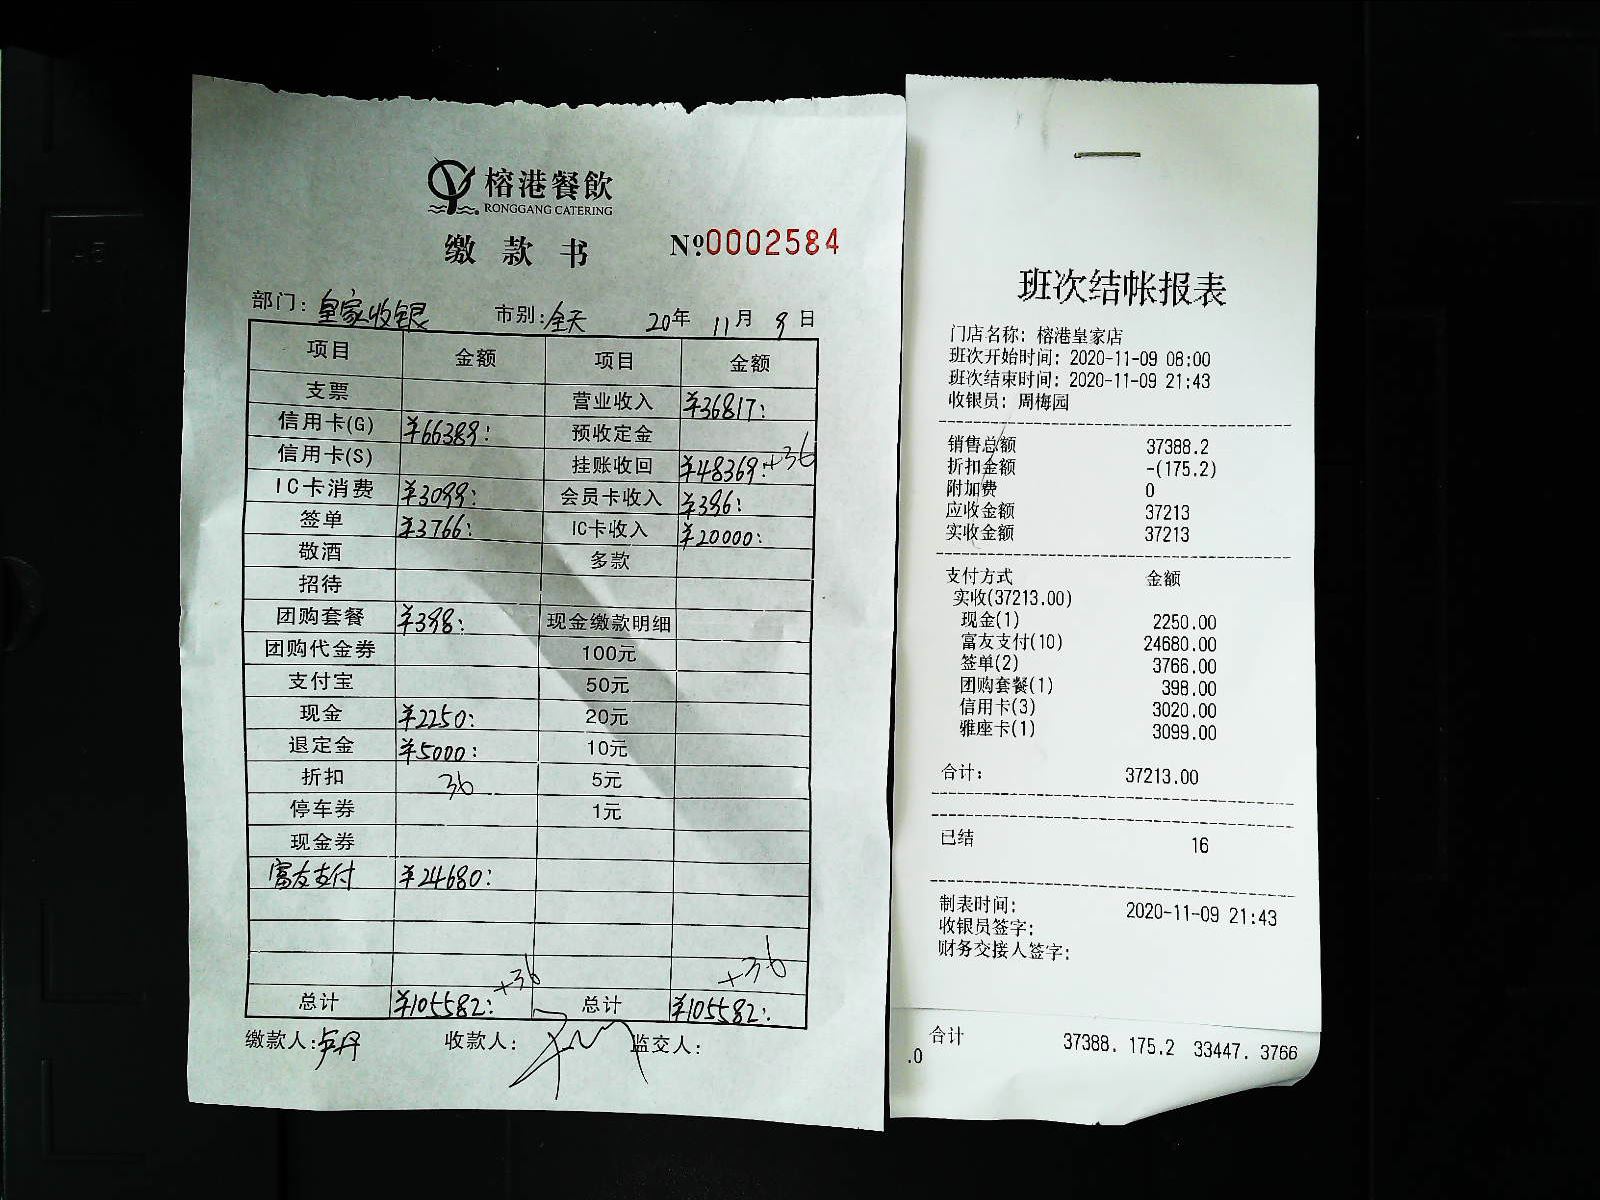 榕港餐飲
RONGGANG CATERING
缴款书 №0002584
部门：皇家收银 市别：全天 20年 11月 9日
项目 金额 项目 金额
支票 营业收入 ¥36817:
信用卡(G) ¥66389: 预收定金
信用卡(S) 挂账收回 ¥48369:+36
IC卡消费 ¥3099: 会员卡收入 ¥396:
签单 ¥3766: IC卡收入 ¥20000:
敬酒 多款
招待
团购套餐 ¥398: 现金缴款明细
团购代金券 100元
支付宝 50元
现金 ¥2250: 20元
退定金 ¥5000: 10元
折扣 36 5元
停车券 1元
现金券
富友支付 ¥24680:
+36 +36
总计 ¥105582: 总计 ¥105582:
缴款人:卢丹 收款人: 监交人:
班次结帐报表
门店名称: 榕港皇家店
班次开始时间: 2020-11-09 08:00
班次结束时间: 2020-11-09 21:43
收银员: 周梅园
销售总额 37388.2
折扣金额 -(175.2)
附加费 0
应收金额 37213
实收金额 37213
支付方式 金额
实收(37213.00)
现金(1) 2250.00
富友支付(10) 24680.00
签单(2) 3766.00
团购套餐(1) 398.00
信用卡(3) 3020.00
雅座卡(1) 3099.00
合计: 37213.00
已结 16
制表时间: 2020-11-09 21:43
收银员签字:
财务交接人签字:
合计 37388. 175.2 33447. 3766
.0